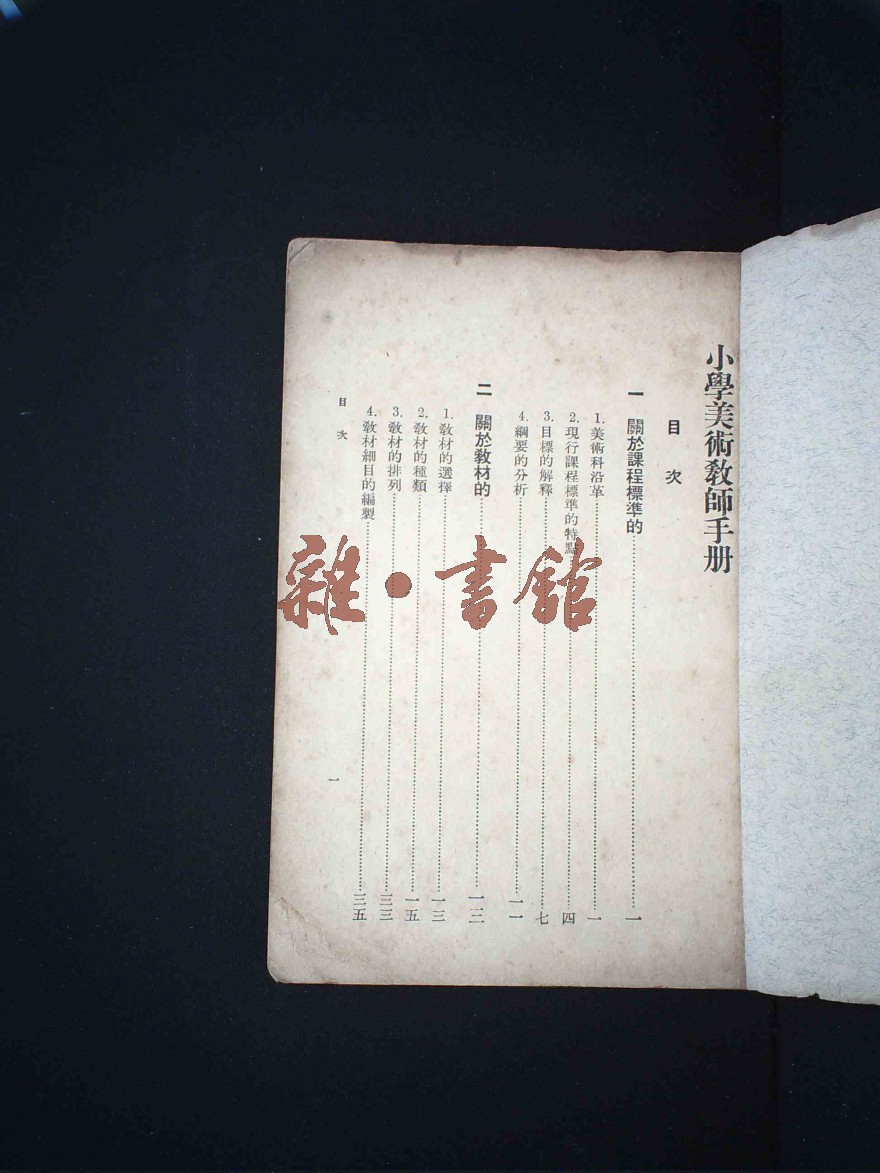 小學美術教師手册
目次
一 關於課程標準的……一
1. 美術科沿革……一
2. 現行課程標準的特點……四
3. 目標的解釋……七
4. 綱要的分析……一一
二 關於教材的……一三
1. 教材的選擇……一三
2. 教材的種類……一五
3. 教材的排列……三三
4. 教材細目的編製……三五
目次
一
雜·書館